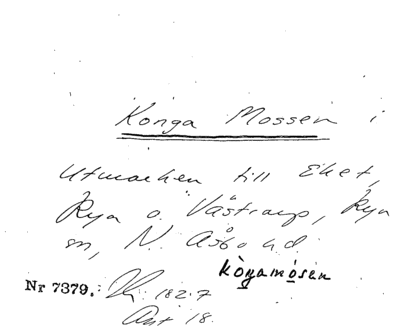 Konga Mossen i
Utmarken till Eket,
Rya o. Västraup, Rya
sn, N. Åsbo hd.
kòŋamósen
Nr 7379. 182.7
Ant 18.